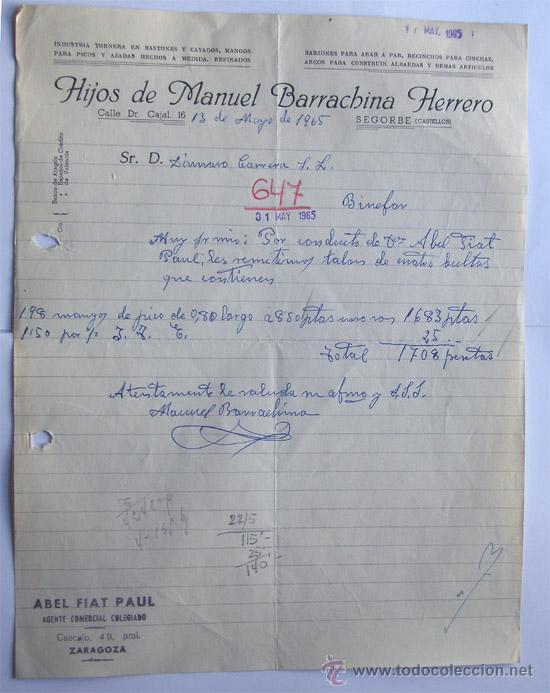 MAY. 1965
INDUSTRIA TORNERA EN BASTONES Y CAYADOS, MANGOS
PARA PICOS Y AZADAS HECHOS A MEDIDA, REFINADOS
BARZONES PARA ARAR A PAR, RECINCHOS PARA CINCHAS,
ARCOS PARA CONSTRUIR ALBARDAS Y DEMAS ARTICULOS
Hijos de Manuel Barrachina Herrero
Calle Dr. Cajal, 16
SEGORBE (CASTELLON)
13 de Mayo de 1965
Banco de Aragón
Español de Crédito
de Valencia
Sr. D. Carrera S. L.
647
31 MAY 1965
Binefar
Muy Sr mio: Por conducto de Abel Fiat
Paul, les remitimos talon de cuatro bultos
que contienen
198 mangos de pico de 0,80 largo a 850 ptas uno son 1683 ptas
1'50 por % I. T. E. 25
Total 1708 pesetas
Atentamente le saluda su afmo y S.S.S.
Manuel Barrachina
22/5
115'-
25'-
140-
ABEL FIAT PAUL
AGENTE COMERCIAL COLEGIADO
Coscojo, 49, pral.
ZARAGOZA
www.todocoleccion.net